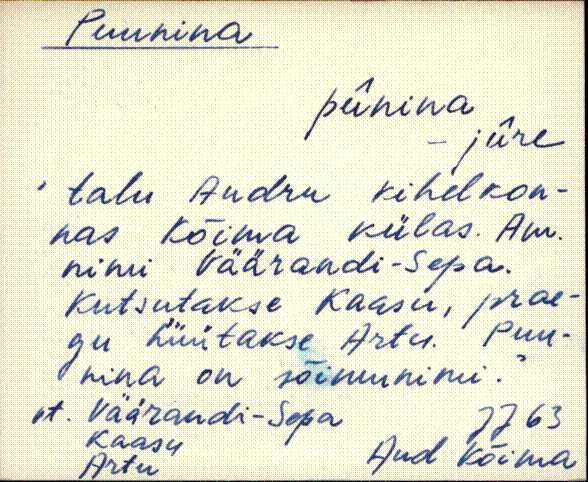 Puunina
pûnina
– jûre
' talu Audru kihelkon-
nas Kõima külas. Am.
nimi Väärandi-Sepa.
Kutsutakse Kaasu, prae-
gu hüütakse Artu. Puu-
nina on sõimunimi."
vt. Väärandi-Sepa
Kaasu
Artu
JJ 63
Aud Kõima